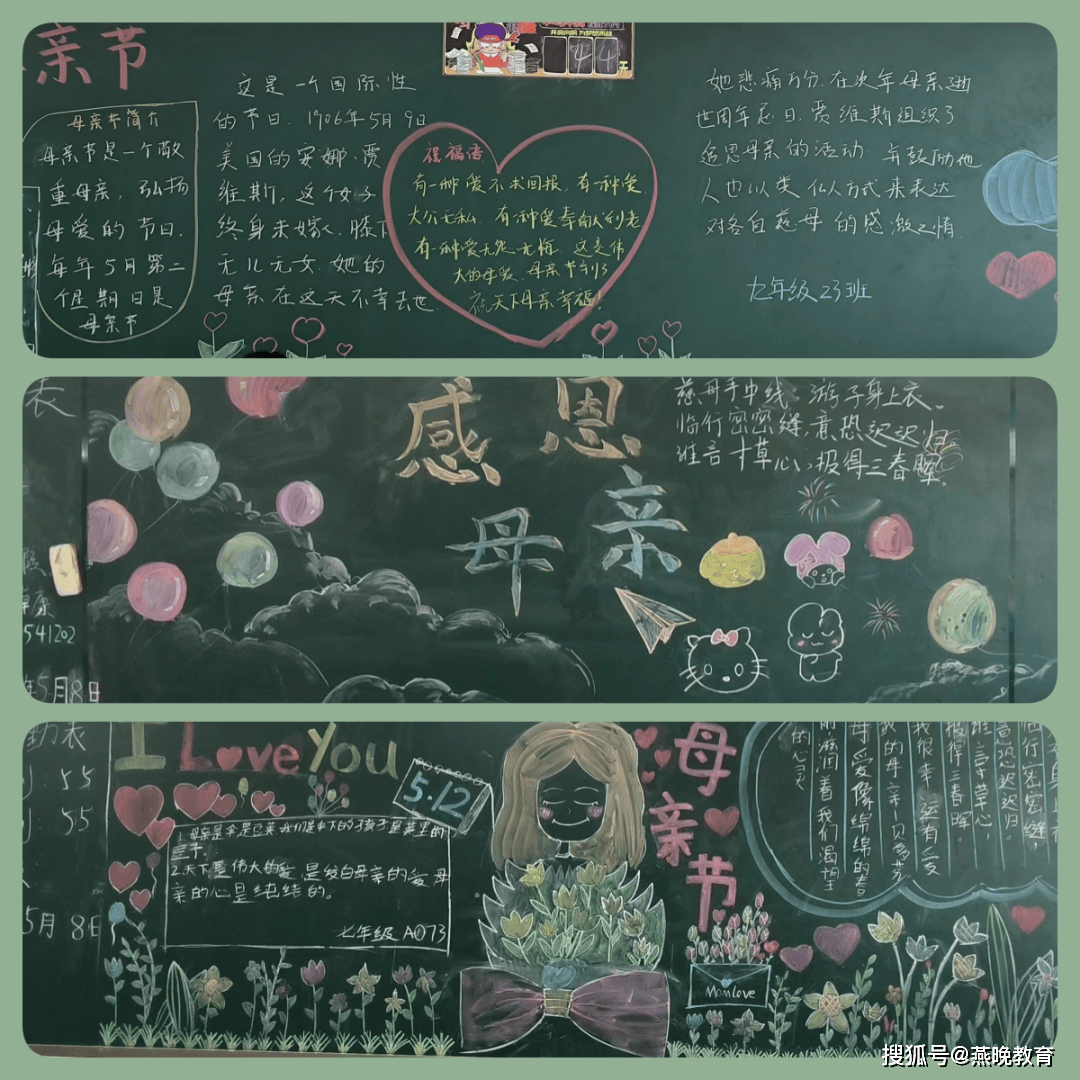 亲节
母亲节简介
母亲节是一个敬
重母亲，弘扬
母爱的节日.
每年5月第二
个星期日是
母亲节
这是一个国际性
的节日.1906年5月9日
美国的安娜.贾
维斯，这个女子
终身未嫁.膝下
无儿无女.她的
母亲在这天不幸去世.
44天
祝福语
有一种爱不求回报.有一种爱
大公无私.有一种爱奉自人到老
有一种爱无怨无悔.这是伟
大的母爱.母亲节到了
祝天下母亲幸福!
她悲痛万分.在次年母亲逝
世周年忌日.贾维斯组织了
追思母亲的活动 并鼓励他
人也以类似方式来表达
对各自慈母的感激之情.
七年级23班
表
541202
5月8日
感恩
母亲
慈母手中线，游子身上衣。
临行密密缝，意恐迟迟归
谁言寸草心，报得三春晖.
表
55
55
5月8日
I Love You
5.12
2.天下最伟大的爱是发自母亲的爱母
亲的心是纯结的。
七年级A073
母亲节
Mom Love
临行密密缝，
意恐迟迟归。
谁言寸草心
报得三春晖
我很幸运有爱
我的母亲—贝多芬
母爱像绵绵的春
雨滋润着我们渴望
的心灵
搜狐号@燕晚教育